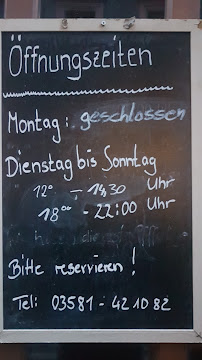 Öffnungszeiten
Montag: geschlossen
Dienstag bis Sonntag
12⁰⁰ – 14,30 Uhr
18⁰⁰ – 22:00 Uhr
Bitte reservieren!
Tel: 03581 - 421082